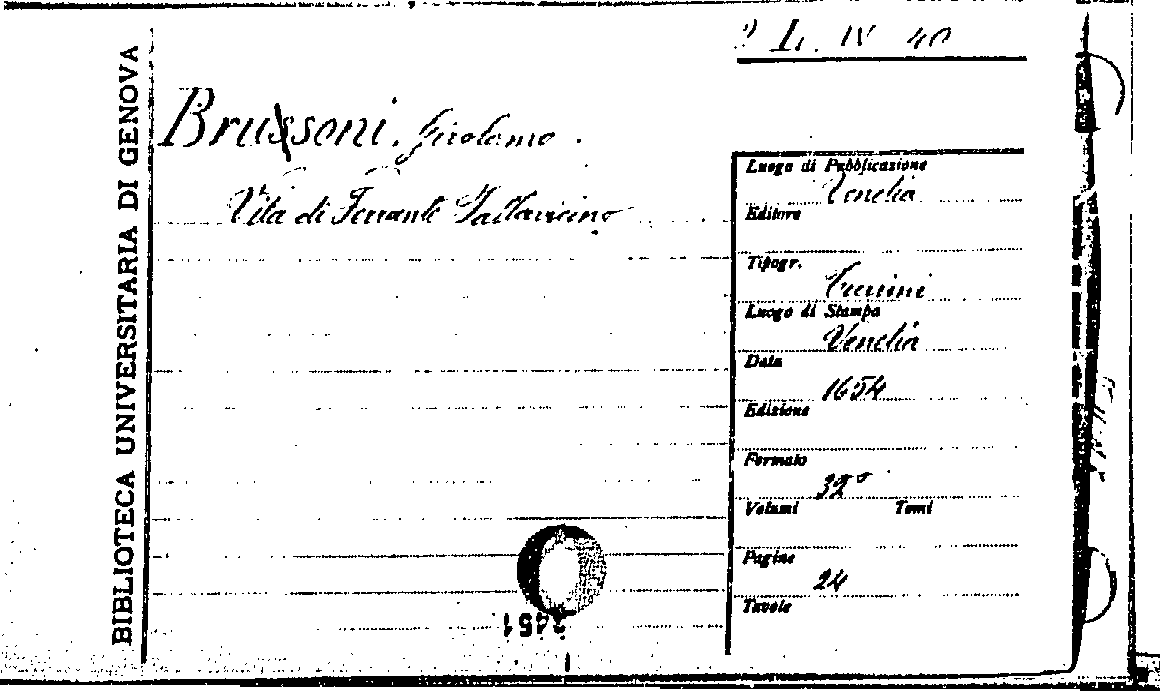 BIBLIOTECA UNIVERSITARIA DI GENOVA
L. IV 40
Brussoni, Girolamo.
Vita di Ferrante Pallavicino
Luogo di Pubblicazione
Venetia
Editore
Tipogr.
Turrini
Luogo di Stampa
Venetia
Data
1654
Edizione
Formato
32°
Volumi Tomi
Pagine
24
Tavole